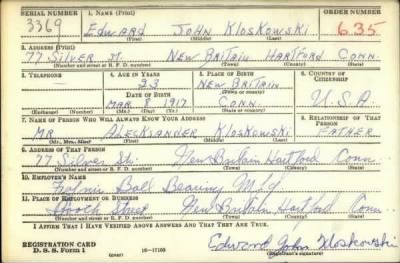 SERIAL NUMBER 1. NAME (Print) ORDER NUMBER
3369 EDWARD JOHN KLOSKOWSKI 635
(First) (Middle) (Last)
2. ADDRESS (Print)
77 SILVER ST. NEW BRITAIN HARTFORD CONN.
(Number and street or R. F. D. number) (Town) (County) (State)
3. TELEPHONE 4. AGE IN YEARS 5. PLACE OF BIRTH 6. COUNTRY OF CITIZENSHIP
— 23 NEW BRITAIN
(Town or county)
DATE OF BIRTH
MAR 8 1917 CONN. U.S.A.
(Exchange) (Number) (Mo.) (Day) (Yr.) (State or country)
7. NAME OF PERSON WHO WILL ALWAYS KNOW YOUR ADDRESS 8. RELATIONSHIP OF THAT PERSON
MR ALECKSANDER KLOSKOWSKI FATHER
(Mr., Mrs., Miss) (First) (Middle) (Last)
9. ADDRESS OF THAT PERSON
77 Silver St. New Britain Hartford Conn.
(Number and street or R. F. D. number) (Town) (County) (State)
10. EMPLOYER'S NAME
Fafnir Ball Bearing Mfg
11. PLACE OF EMPLOYMENT OR BUSINESS
Street New Britain Hartford Conn.
(Number and street or R. F. D. number) (Town) (County) (State)
I AFFIRM THAT I HAVE VERIFIED ABOVE ANSWERS AND THAT THEY ARE TRUE.
REGISTRATION CARD
D. S. S. Form 1 (over) Edward John Kloskowski
(Registrant's signature)